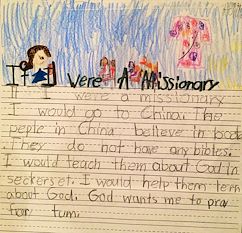 If I Were A Missionary
If I were a missionary
I would go to China. the
peple in China believe in bode
They do not have any bibles.
I would teach them about God in
seckerset. I would help them lern
about God. God wants me to pra
for tum.